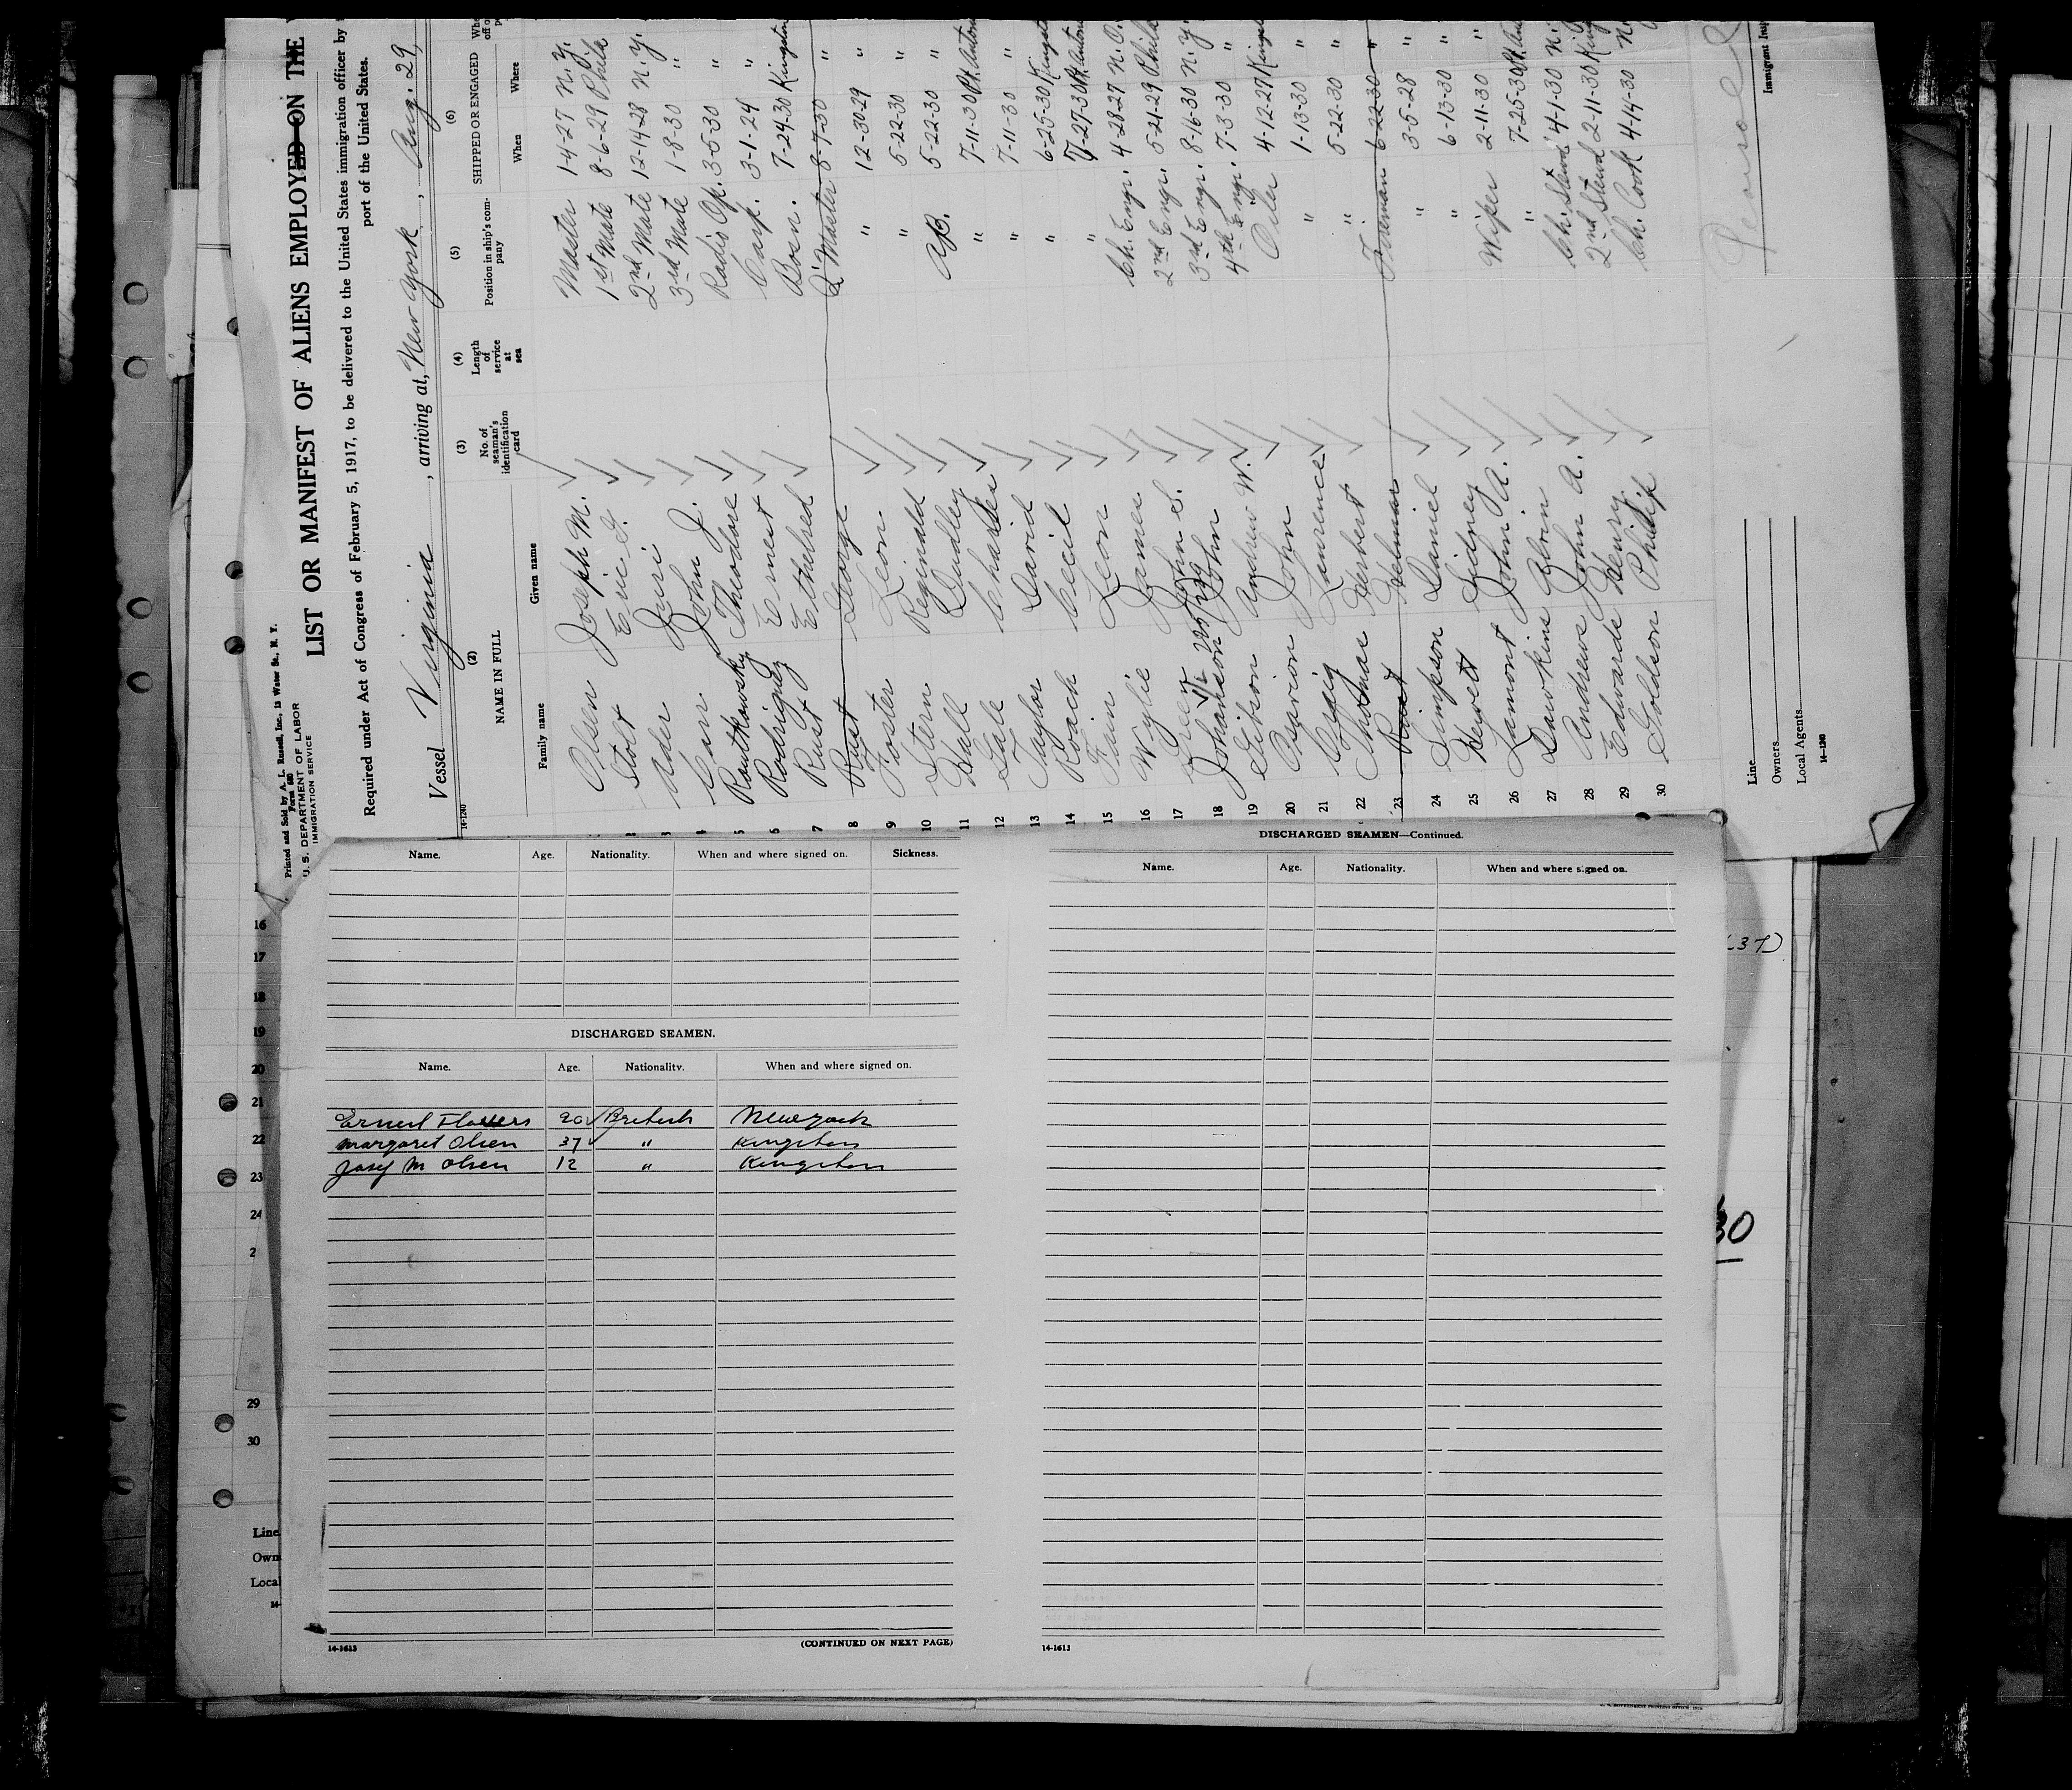 Printed and Sold by A. L. Russell, Inc., 13 Water St., N. Y.
Form 680
U. S. DEPARTMENT OF LABOR
IMMIGRATION SERVICE
LIST OR MANIFEST OF ALIENS EMPLOYED ON THE
Required under Act of Congress of February 5, 1917, to be delivered to the United States immigration officer by
port of the United States.
Vessel Virginia, arriving at, New York, Aug. 29,
14-1240
(2) (3) (4) (5) (6)
NAME IN FULL No. of seaman's identification card Length of service at sea Position in ship's company SHIPPED OR ENGAGED
Family name Given name When Where
Olsen Joseph M. Master 1-4-27 N.Y.
Stolt Eric G. 1st Mate 8-6-29 Phila
Juri 2nd Mate 12-14-28 N.Y.
4 Carr John J. 3rd Mate 1-8-30 "
5 Thodore Radio Op. 3-5-30 "
6 Rodriguez Ernest Carp. 3-1-24 "
7 Rust Ethelred Bosn. 7-24-30 Kingston
8 Rust George Q. Master 8-7-30 "
9 Foster Leon " 12-30-29 "
10 Stern Reginald " 5-22-30 "
11 Hall Dudley AB. 5-22-30 "
12 Gale Charles " 7-11-30 Pt. Antonio
13 Taylor David " 7-11-30 "
14 Roach Cecil " 6-25-30 Kingston
15 Leon " 7-27-30 Pt. Antonio
16 Wylie James Ch. Engr. 4-28-27 N.O.
17 John S. 2nd Engr. 5-21-29 Phila
18 Johanson John 3rd Engr. 8-16-30 N.Y.
19 Gibson Andrew W. 4th Eng. 7-3-30 "
20 John Oiler 4-12-27 Kingston
21 Craig Laurence " 1-13-30 "
22 Thomas Herbert " 5-22-30 "
23 Fireman 6-22-30 "
24 Simpson Daniel " 3-5-28 "
25 Hewett Sidney " 6-13-30 "
26 Lamont John A. Wiper 2-11-30 "
27 Dawkins " 7-25-30
28 Andrews John A. Ch. Stewd 4-1-30
29 Edwards Henry 2nd Stewd 2-11-30
30 Goldson Philip Ch. Cook 4-14-30
Line
Owners
Local Agents
14-1240
Immigrant
Name. Age. Nationality. When and where signed on. Sickness.
DISCHARGED SEAMEN.
Name. Age. Nationality. When and where signed on.
Ernest Flowers 20 British New York
Margaret Olsen 37 " Kingston
M Olsen 12 " Kingston
14-1613
(CONTINUED ON NEXT PAGE)
DISCHARGED SEAMEN—Continued.
Name. Age. Nationality. When and where signed on.
14-1613
16
17
18
19
20
21
22
23
24
2
29
30
Line
Own
Local
14-
30